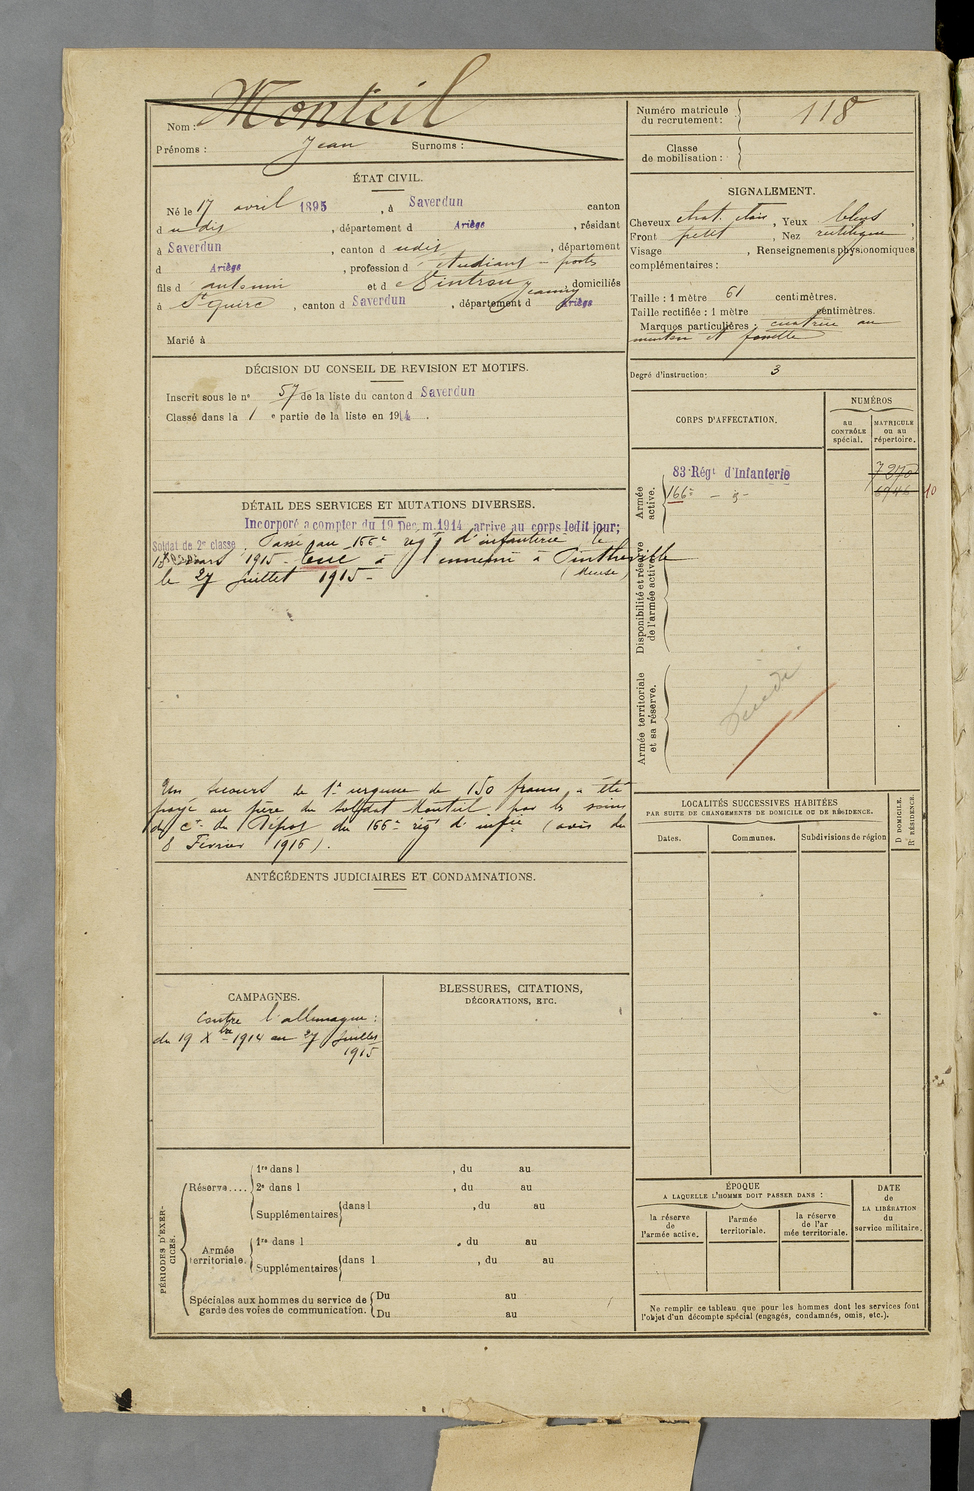 Nom : Monteil
Prénoms : Jean Surnoms :
Numéro matricule du recrutement : 118
Classe de mobilisation :
ÉTAT CIVIL.
Né le 17 avril 1895, à Saverdun canton
du dis, département d Ariège, résidant
à Saverdun, canton d udis, département
d Ariège, profession d étudiant
fils d'antonin et d Jeanny, domiciliés
à St Quirc, canton d Saverdun, département d Ariège
Marié à
SIGNALEMENT.
Cheveux chat. clair, Yeux bleus,
Front petit, Nez rectiligne
Visage , Renseignements physionomiques
complémentaires :
Taille : 1 mètre 61 centimètres.
Taille rectifiée : 1 mètre centimètres.
Marques particulières : cicatrice au
menton et fossette
Degré d'instruction : 3
DÉCISION DU CONSEIL DE REVISION ET MOTIFS.
Inscrit sous le n° 57 de la liste du canton d Saverdun
Classé dans la 1e partie de la liste en 1914.
CORPS D'AFFECTATION.
NUMÉROS
au CONTRÔLE spécial.
MATRICULE ou au répertoire.
Armée active.
83e Régt d'Infanterie 7270
166e - d°-
10
Disponibilité et réserve de l'armée active.
Armée territoriale et sa réserve.
Décédé
DÉTAIL DES SERVICES ET MUTATIONS DIVERSES.
Incorporé à compter du 19 Décem. 1914 arrivé au corps ledit jour;
Soldat de 2e classe. Passé au 166e régt d'infanterie le
mars 1915 - tué à l'ennemi à Pintheville
le 27 juillet 1915 - (Meuse)
Un secours de 1e urgence de 150 francs a été
payé au père du soldat Monteil par les soins
du Ct du Dépôt du 166e régt d'infie (avis du
8 Février 1916).
LOCALITÉS SUCCESSIVES HABITÉES
PAR SUITE DE CHANGEMENTS DE DOMICILE OU DE RÉSIDENCE.
Dates. Communes. Subdivisions de région
D DOMICILE.
R RÉSIDENCE.
ANTÉCÉDENTS JUDICIAIRES ET CONDAMNATIONS.
CAMPAGNES.
Contre l'allemagne :
du 19 Xbre 1914 au 27 juillet
1915
BLESSURES, CITATIONS,
DÉCORATIONS, ETC.
PÉRIODES D'EXERCICES.
Réserve....
1re dans l , du au
2e dans l , du au
Supplémentaires dans l , du au
Armée territoriale.
1re dans l , du au
Supplémentaires dans l , du au
Spéciales aux hommes du service de
garde des voies de communication.
Du au
Du au
ÉPOQUE
A LAQUELLE L'HOMME DOIT PASSER DANS :
la réserve de l'armée active.
l'armée territoriale.
la réserve de l'armée territoriale.
DATE de LA LIBÉRATION du service militaire.
Ne remplir ce tableau que pour les hommes dont les services font
l'objet d'un décompte spécial (engagés, condamnés, omis, etc.).